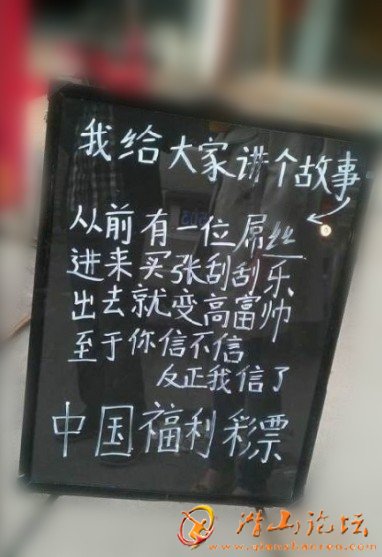 我给大家讲个故事
从前有一位屌丝
进来买张刮刮乐
出去就变高富帅
至于你信不信
反正我信了
中国福利彩票
潜山论坛
www.qianshanren.com